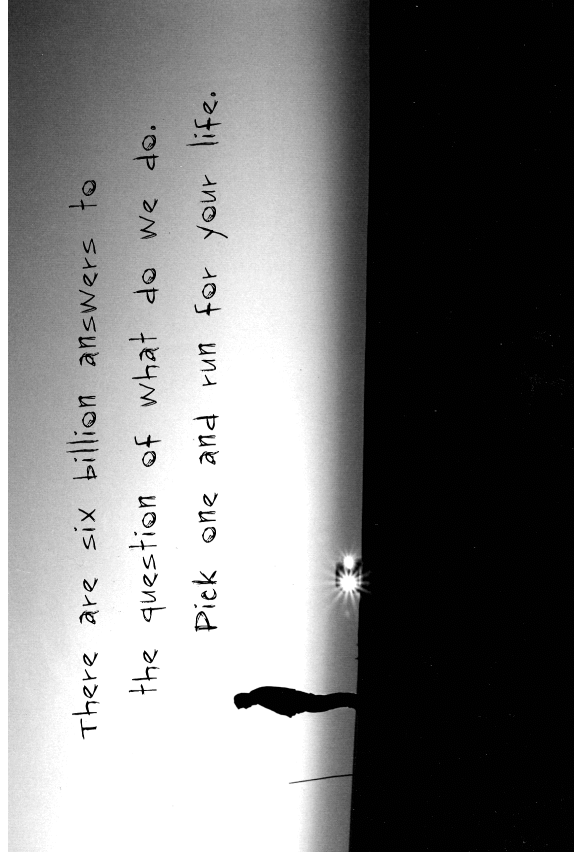 There are six billion answers to
the question of what do we do.
Pick one and run for your life.